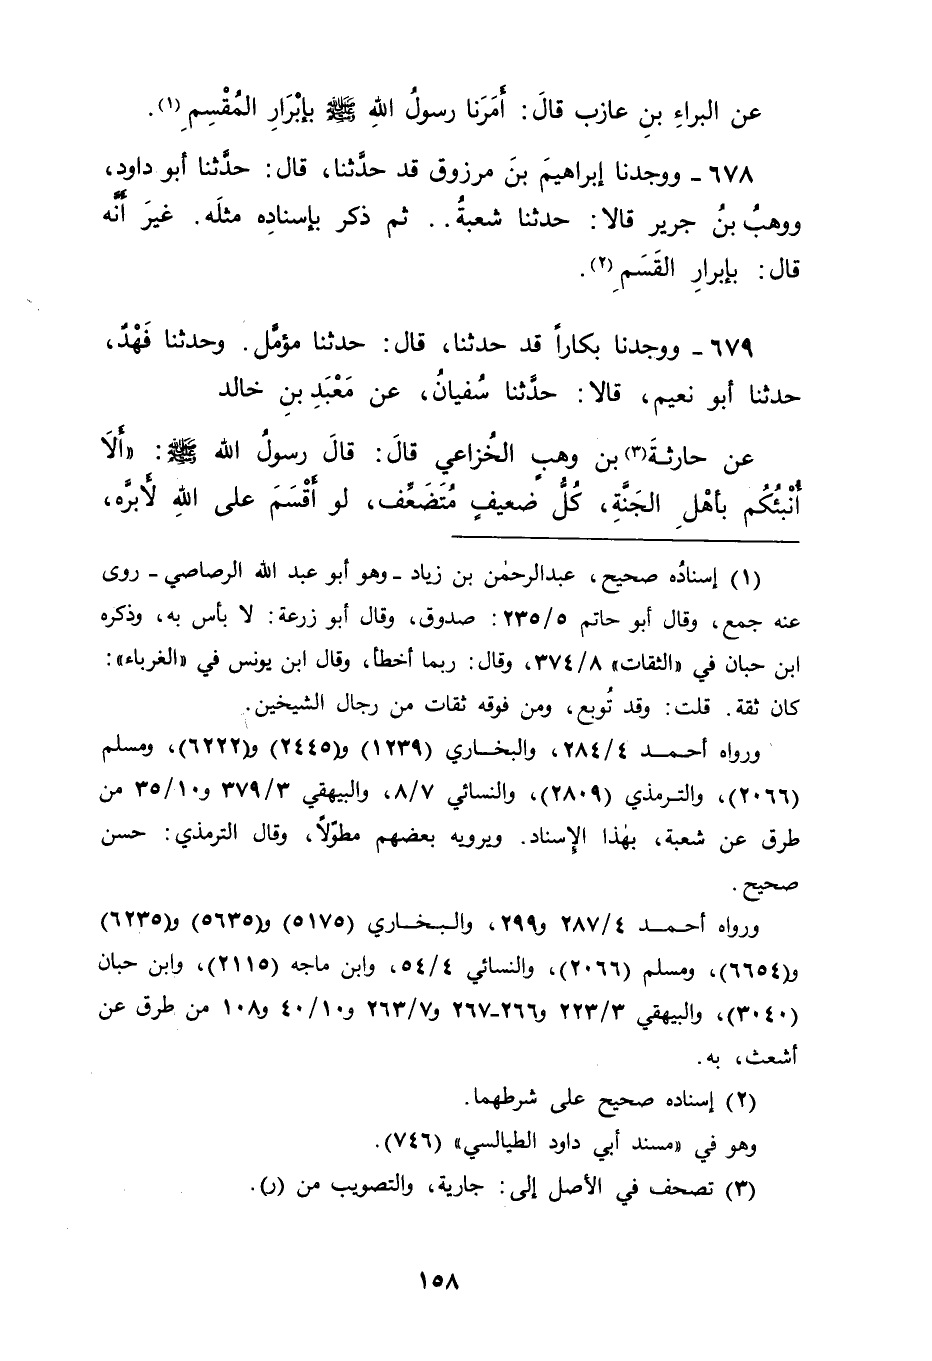 عن البراءِ بنِ عازب قالَ: أَمَرَنا رسولُ اللهِ ﷺ بإبْرَارِ المُقْسِمِ(١).
٦٧٨ - ووجدنا إبراهيمَ بنَ مرزوق قد حدَّثنا، قال: حدَّثنا أبو داود،
ووهبُ بنُ جرير قالا: حدثنا شعبةُ.. ثم ذكر بإسنادِه مثلَه. غيرَ أنَّه
قال: بإبرارِ القَسَمِ(٢).
٦٧٩ - ووجدنا بكاراً قد حدثنا، قال: حدثنا مؤمَّل. وحدثنا فَهْدٌ،
حدثنا أبو نعيم، قالا: حدَّثنا سُفيانُ، عن مَعْبَدِ بنِ خالد
عن حارثةَ(٣) بن وهبٍ الخُزاعي قالَ: قالَ رسولُ الله ﷺ: «أَلَا
أُنْبئُكُم بأهْلِ الجَنَّةِ، كُلُّ ضعيفٍ مُتَضَعِّف، لو أَقْسَمَ على اللهِ لأَبرَّه،
(١) إسنادُه صحيح، عبدالرحمٰن بن زياد - وهو أبو عبد الله الرصاصي - روى
عنه جمع، وقال أبو حاتم ٢٣٥/٥: صدوق، وقال أبو زرعة: لا بأس به، وذكره
ابن حبان في «الثقات» ٣٧٤/٨، وقال: ربما أخطأ، وقال ابن يونس في «الغرباء»:
كان ثقة. قلت: وقد تُوبع، ومن فوقه ثقات من رجال الشيخين.
ورواه أحمد ٢٨٤/٤، والبخاري (١٢٣٩) و(٢٤٤٥) و(٦٢٢٢)، ومسلم
(٢٠٦٦)، والترمذي (٢٨٠٩)، والنسائي ٨/٧، والبيهقي ٣٧٩/٣ و٣٥/١٠ من
طرق عن شعبة، بهٰذا الإسناد. ويرويه بعضهم مطوّلاً، وقال الترمذي: حسن
صحيح.
ورواه أحمد ٢٨٧/٤ و٢٩٩، والبخاري (٥١٧٥) و(٥٦٣٥) و(٦٢٣٥)
و(٦٦٥٤)، ومسلم (٢٠٦٦)، والنسائي ٥٤/٤، وابن ماجه (٢١١٥)، وابن حبان
(٣٠٤٠)، والبيهقي ٢٢٣/٣ و٢٦٦-٢٦٧ و٢٦٣/٧ و٤٠/١٠ و١٠٨ من طرق عن
أشعث، به.
(٢) إسناده صحيح على شرطهما.
وهو في «مسند أبي داود الطيالسي» (٧٤٦).
(٣) تصحف في الأصل إلى: جارية، والتصويب من (ر).
١٥٨